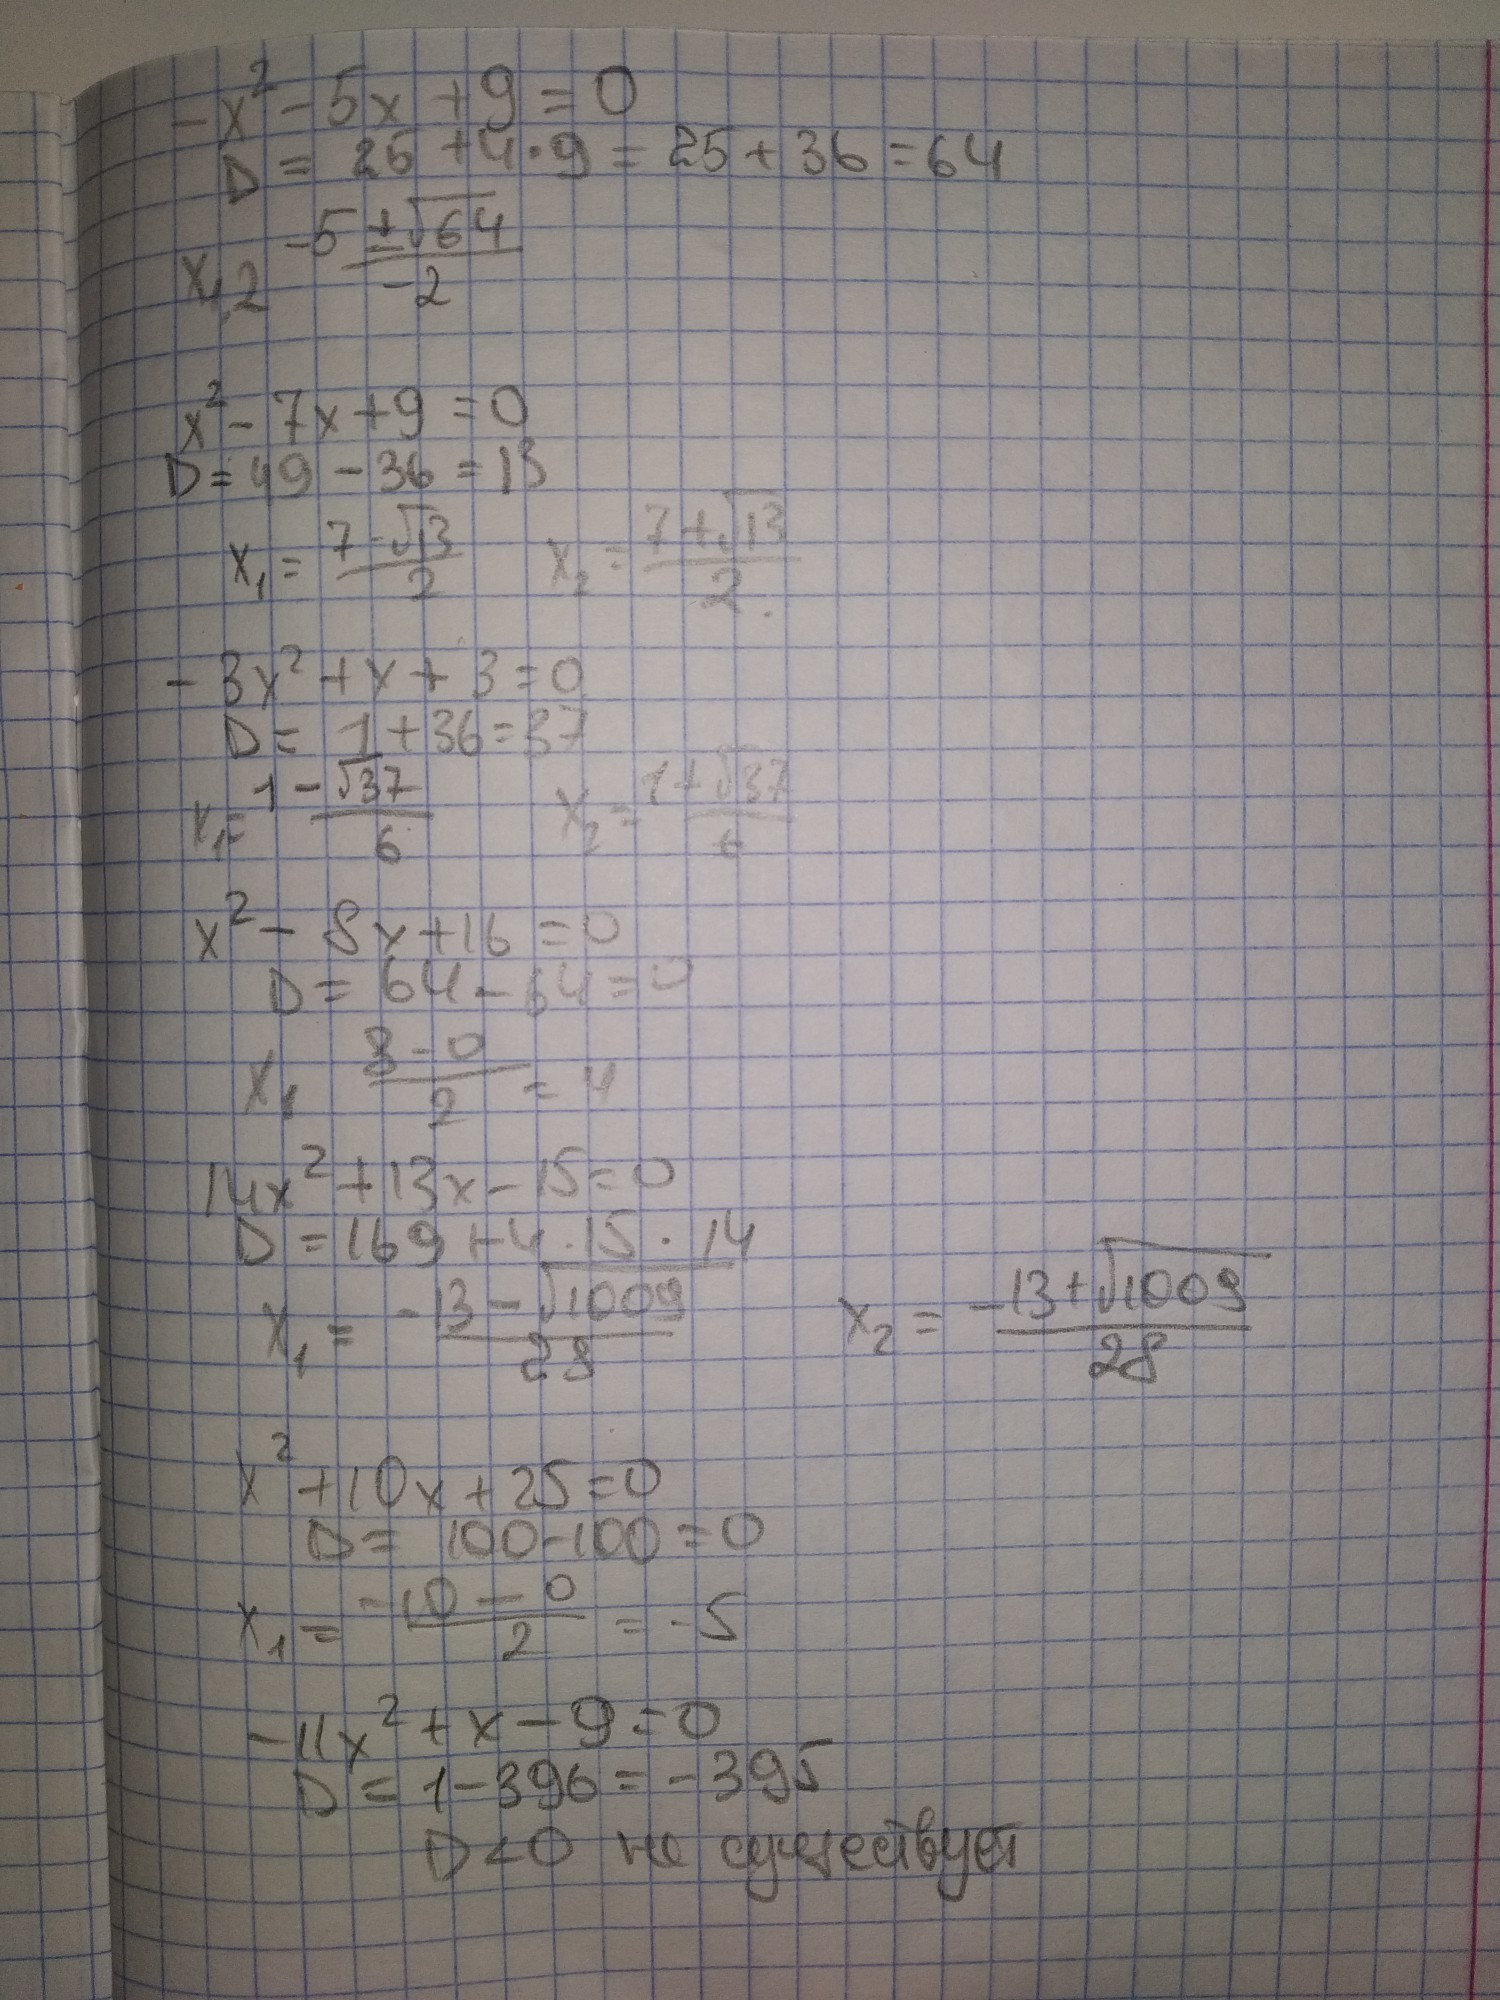 -x² - 5x + 9 = 0
D = 25 + 4·9 = 25 + 36 = 64
x₁,₂ (-5 ± √64)/(-2)
x² - 7x + 9 = 0
D = 49 - 36 = 13
x₁ = (7 - √13)/2 x₂ = (7 + √13)/2
-3x² + x + 3 = 0
D = 1 + 36 = 37
x₁ = (1 - √37)/6 x₂ = (1 + √37)/6
x² - 8x + 16 = 0
D = 64 - 64 = 0
x₁ (8 - 0)/2 = 4
14x² + 13x - 15 = 0
D = 169 + 4·15·14
x₁ = (-13 - √1009)/28 x₂ = (-13 + √1009)/28
x² + 10x + 25 = 0
D = 100 - 100 = 0
x₁ = (-10 - 0)/2 = -5
-11x² + x - 9 = 0
D = 1 - 396 = -395
D < 0 не существует